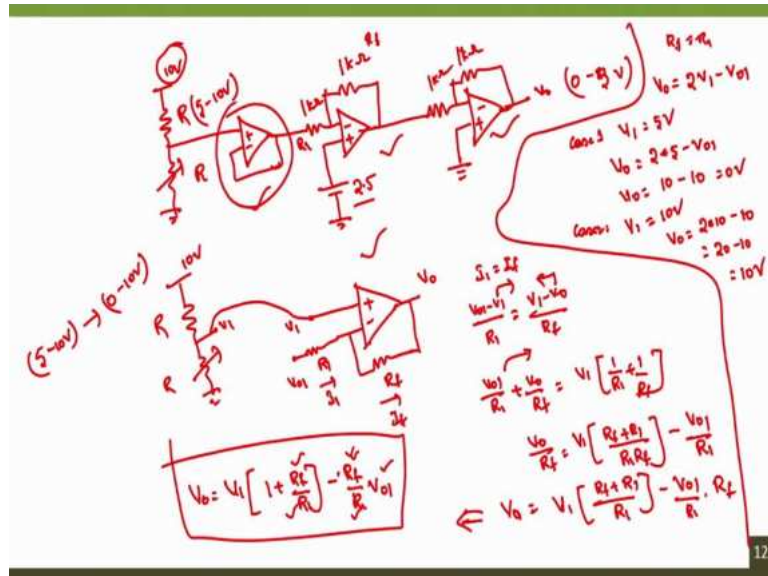 10V
R (5-10V)
R
R1
1kΩ
1kΩ Rf
2.5
1kΩ
1kΩ
Vo (0-5V)
Rf = R1
Vo = 2V1 - V01
Case:1 V1 = 5V
Vo = 2*5 - V01
Vo = 10 - 10 = 0V
Case: V1 = 10V
Vo = 2*10 - 10
= 20 - 10
= 10V
(5-10V) → (0-10V)
10V
R
R
V1
V1
V01
R1
I1
Rf
If
Vo
I1 = If
V01-V1/R1 = V1-Vo/Rf
V01/R1 + Vo/Rf = V1 [1/R1 + 1/Rf]
Vo/Rf = V1 [Rf+R1/R1Rf] - V01/R1
⇐ Vo = V1 [Rf+R1/R1] - V01/R1 . Rf
Vo = V1 [1 + Rf/R1] - Rf/R1 V01
12